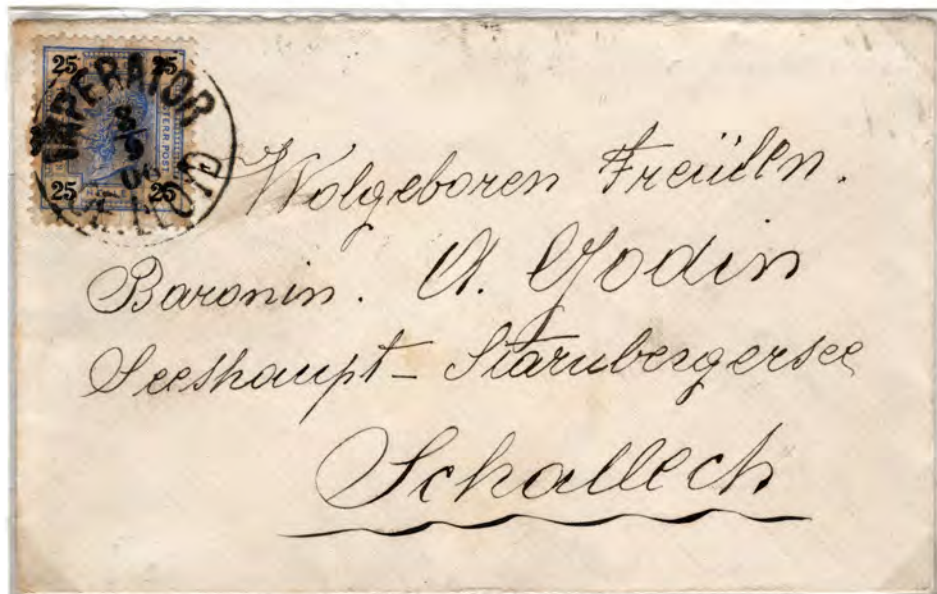 25 25
IMPERATOR
8
9
06
25 HELLER 25
LLOYD
Wolgeboren Freüiln.
Baronin. A. Godin
Seeshaupt - Starnbergersee
Schallech